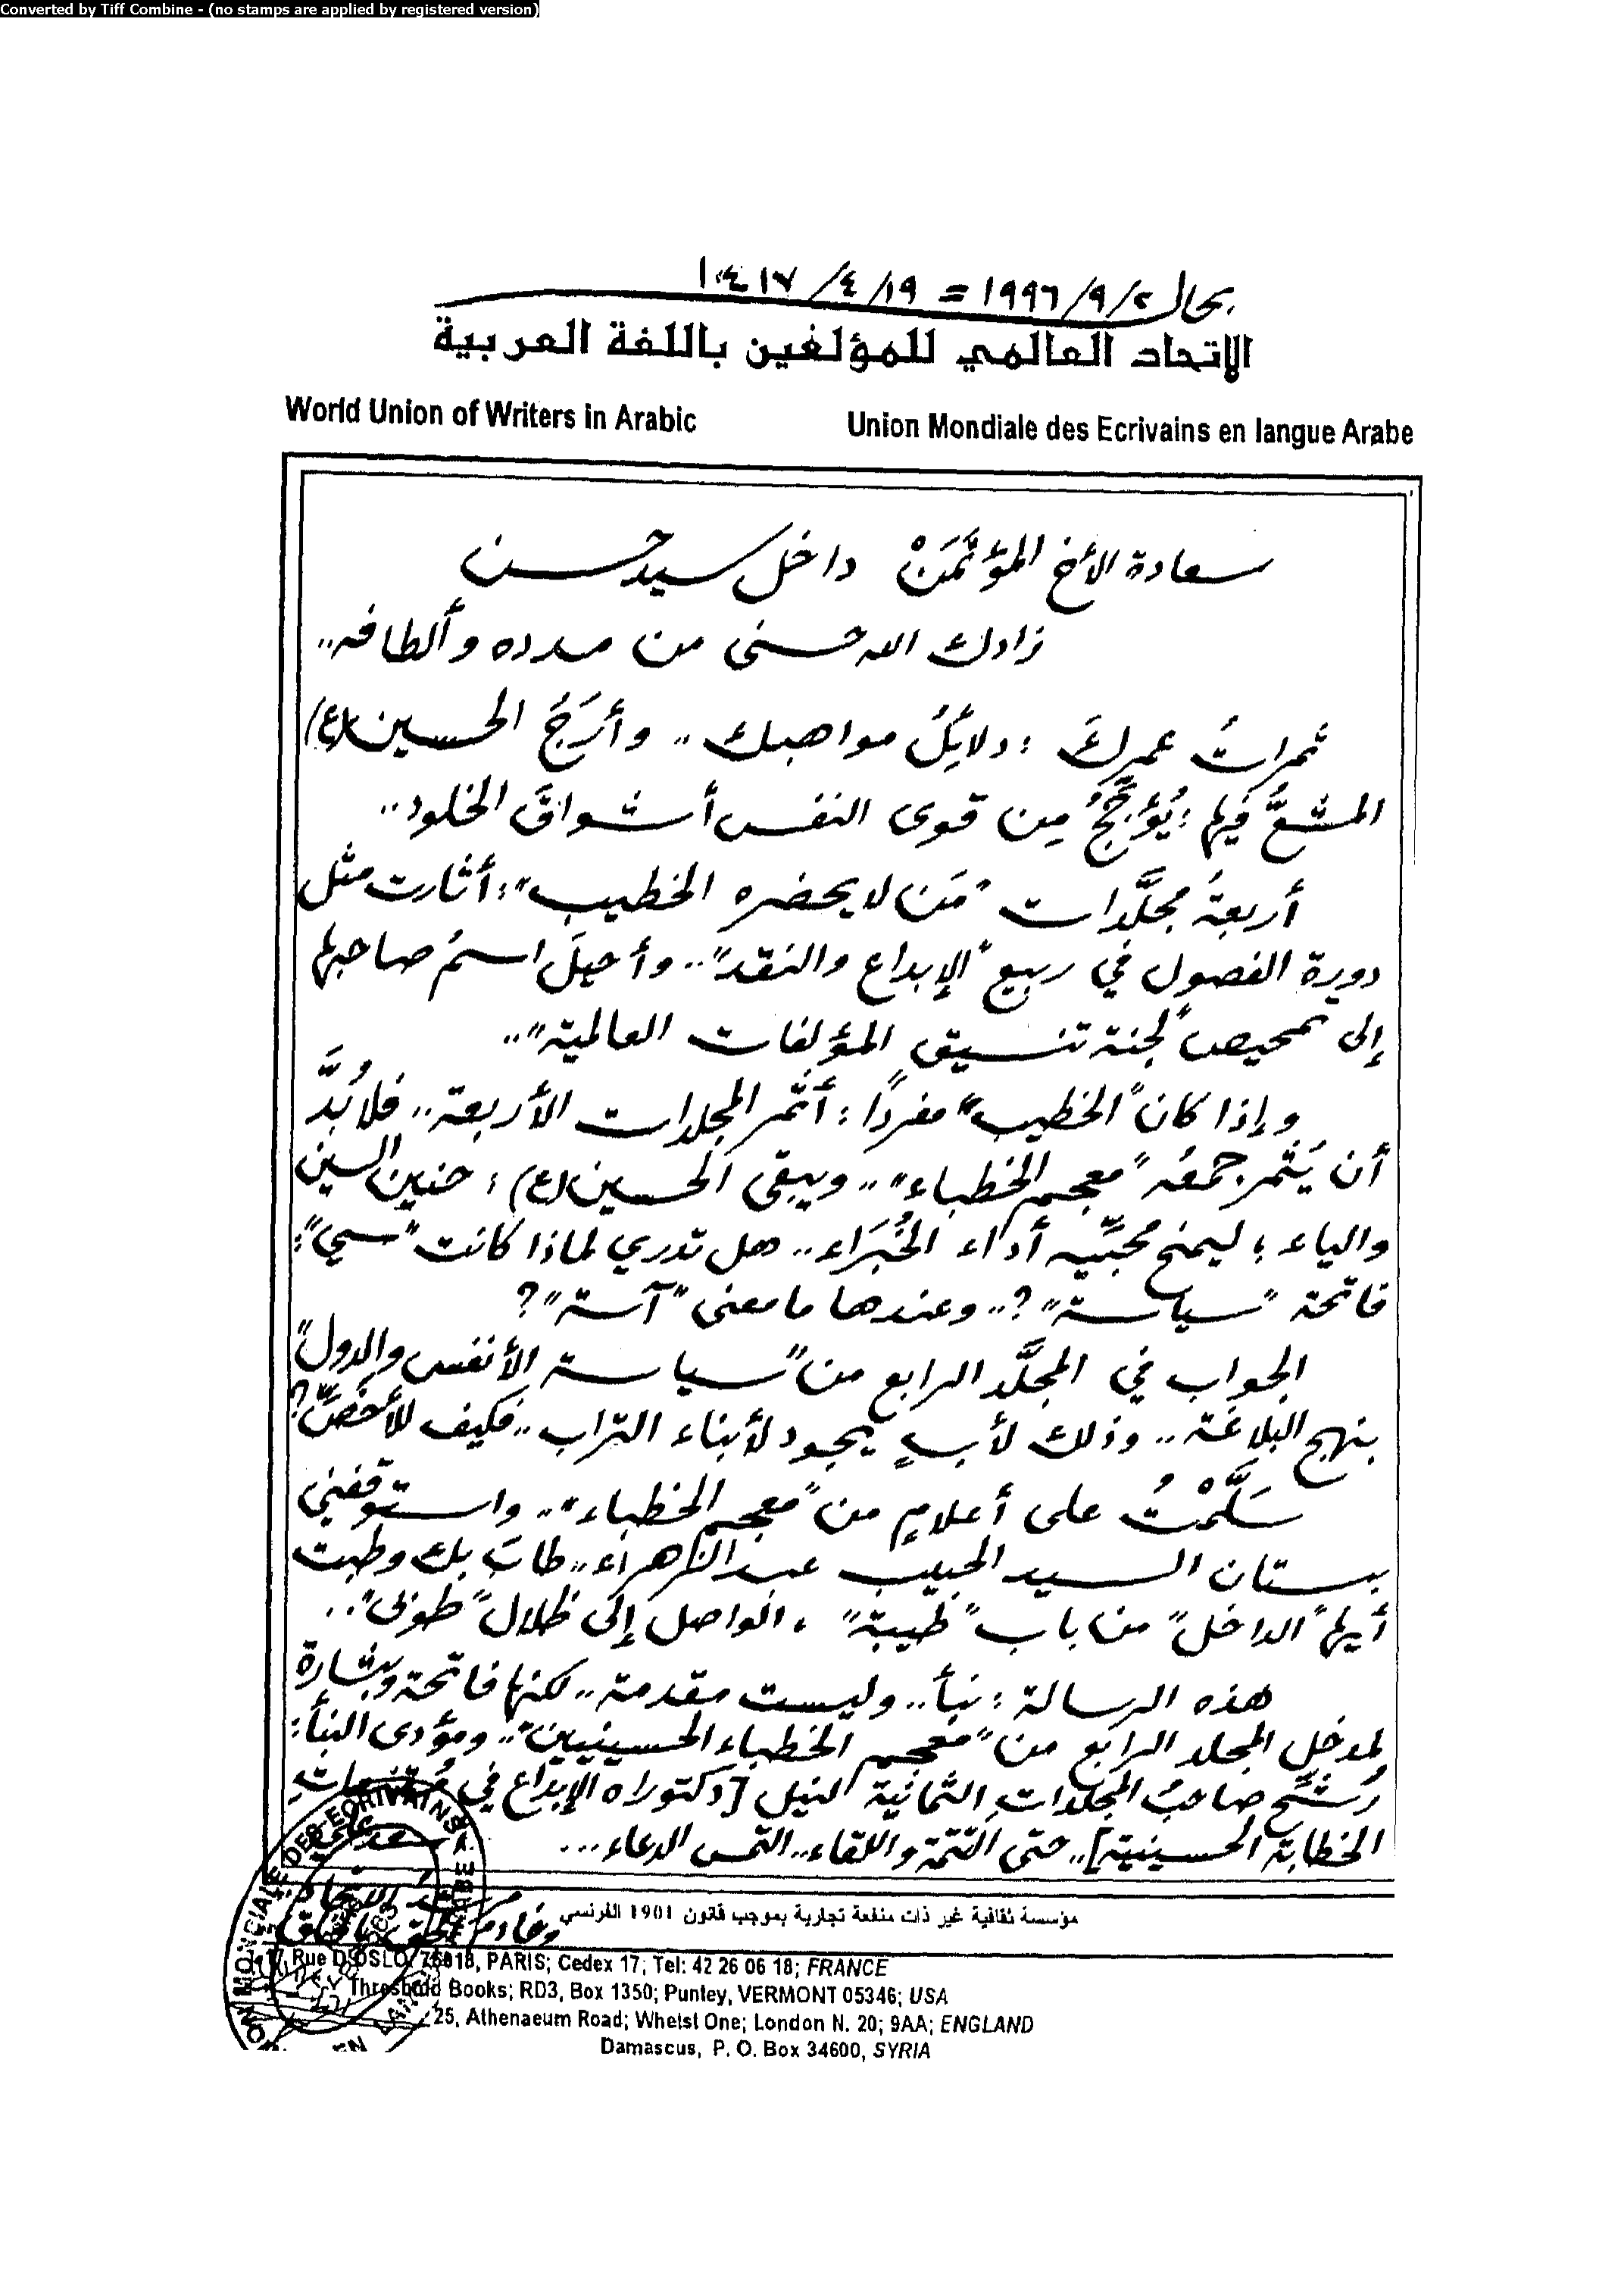 Converted by Tiff Combine - (no stamps are applied by registered version)
١٤١٧/٤/١٩ = ١٩٩٦/٩/٢
الإتحاد العالمي للمؤلفين باللغة العربية
World Union of Writers in Arabic
Union Mondiale des Ecrivains en langue Arabe
سعادة الأخ المؤتَمَنْ داخل سيد حسن
زادك الله حسنى من مدده وألطافه..
ثمراتُ عمركَ : دلائلُ مواهبك .. وأرَجُ الحسين (ع)
المشعُّ فيها : يُؤجِّجُ مِن قوى النفس أشواقَ الخلود..
أربعةُ مجلَّدات "مَن لا يحضره الخطيب" : أثارت مثل
دورة الفصول في ربيع "الإبداع والنقد".. وأحيلَ اسمُ صاحبها
إلى تمحيص "لجنة تنسيق المؤلفات العالمية"..
وإذا كان "الخطيب" مفرداً : أثمر المجلدات الأربعة.. فلا بُدَّ
أن يُثمر جمعُه "معجم الخطباء".. ويبقى الحسين (ع) : حنين السين
والياء ؛ ليمنح محبِّيه أداء الخُبَراء.. هل تدري لماذا كانت "سي" :
فاتحة "سياسة" ؟.. وعندها ما معنى "آسة" ؟
الجواب في المجلَّد الرابع من "سياسة الأنفس والدول"
بنهج البلاغة.. وذلك لأبٍ يجود لأبناء التراب.. فكيف للأخصِّ ؟
سَلَّمْتُ على أعلامٍ من "معجم الخطباء".. واستوقفني
بستان السيد الحبيب عبد الزهراء.. طابَ بك وطبت
أيها "الداخل" من باب "طيبة" ، الواصل إلى ظلال "طوبى"..
هذه الرسالة : نبأ.. وليست مقدمة.. لكنها فاتحة وبشارة
لمدخل المجلد الرابع من "معجم الخطباء الحسينيين".. ومؤدى النبأ :
رُشِّح صاحبُ المجلدات الثمانية لنيل [دكتوراه الإبداع في
الخطابة الحسينية].. حتى التتمة واللقاء.. ألتمس الدعاء...
وخادم
مؤسسة ثقافية غير ذات منفعة تجارية بموجب قانون 1901 الفرنسي
17, Rue D'OSLO, 75018, PARIS; Cedex 17; Tel: 42 26 06 18; FRANCE
Threshold Books; RD3, Box 1350; Puntey, VERMONT 05346; USA
25, Athenaeum Road; Whetst One; London N. 20; 9AA; ENGLAND
Damascus, P. O. Box 34600, SYRIA
MONDIALE DES ECRIVAINS EN LANGUE ARABE